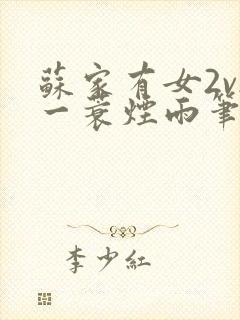 蘇家有女2v
一蓑煙雨筆
李少紅